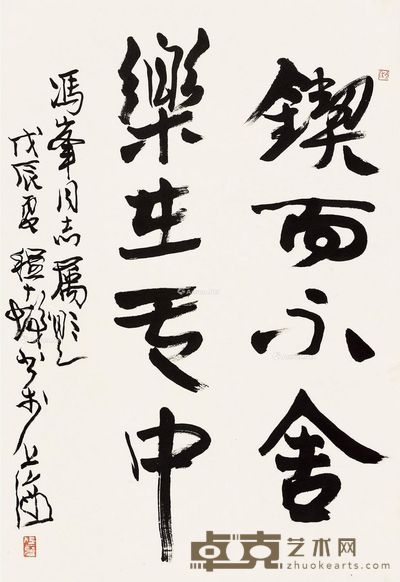 鍥而不舍
樂在其中
馮峯同志屬
戊辰夏程十髮書於上海
卓克艺术网
zhuokearts.com